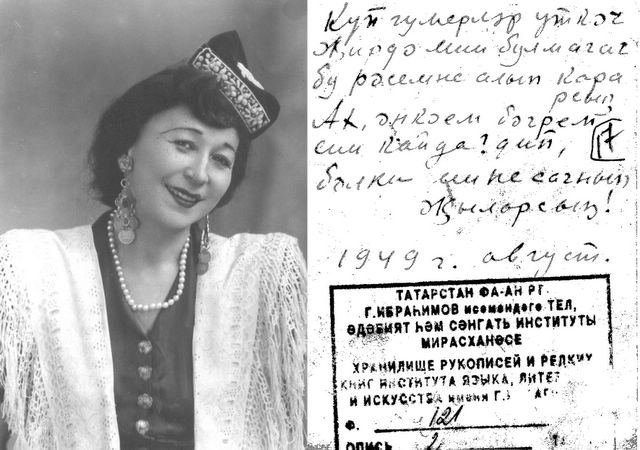 Күп гумерләр үткәч
Җирдә мин булмагач
бу рәсемне алып кара
рсың
Ах, әнкәем бәгрем,
син кайда? дип,
бәлки мине сагнып
Җыларсың!
1949 г. август.
ТАТАРСТАН ФА-АН РТ
Г.ИБРАҺИМОВ исемендәге ТЕЛ,
ӘДӘБИЯТ ҺӘМ СӘНГАТЬ ИНСТИТУТЫ
МИРАСХАНӘСЕ
ХРАНИЛИЩЕ РУКОПИСЕЙ И РЕДКИХ
КНИГ ИНСТИТУТА ЯЗЫКА, ЛИТЕ
И ИСКУССТВА имени Г.
Ф. 121
ОПИСЬ 2